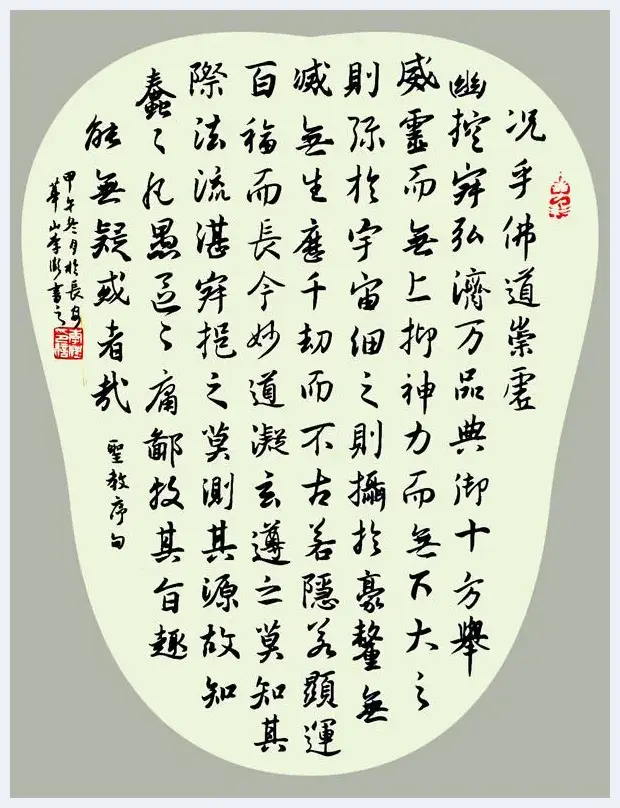 况乎佛道崇虛
幽控寂弘濟万品典御十方舉
威靈而無上抑神力而無下大之
則弥於宇宙細之則攝於豪釐無
滅無生歷千劫而不古若隱若顯運
百福而長今妙道凝玄遵之莫知其
際法流湛寂挹之莫測其源故知
蠢々凡愚區々庸鄙投其旨趣
能無疑或者哉
聖教序句
甲午冬月於長安
華山李書之